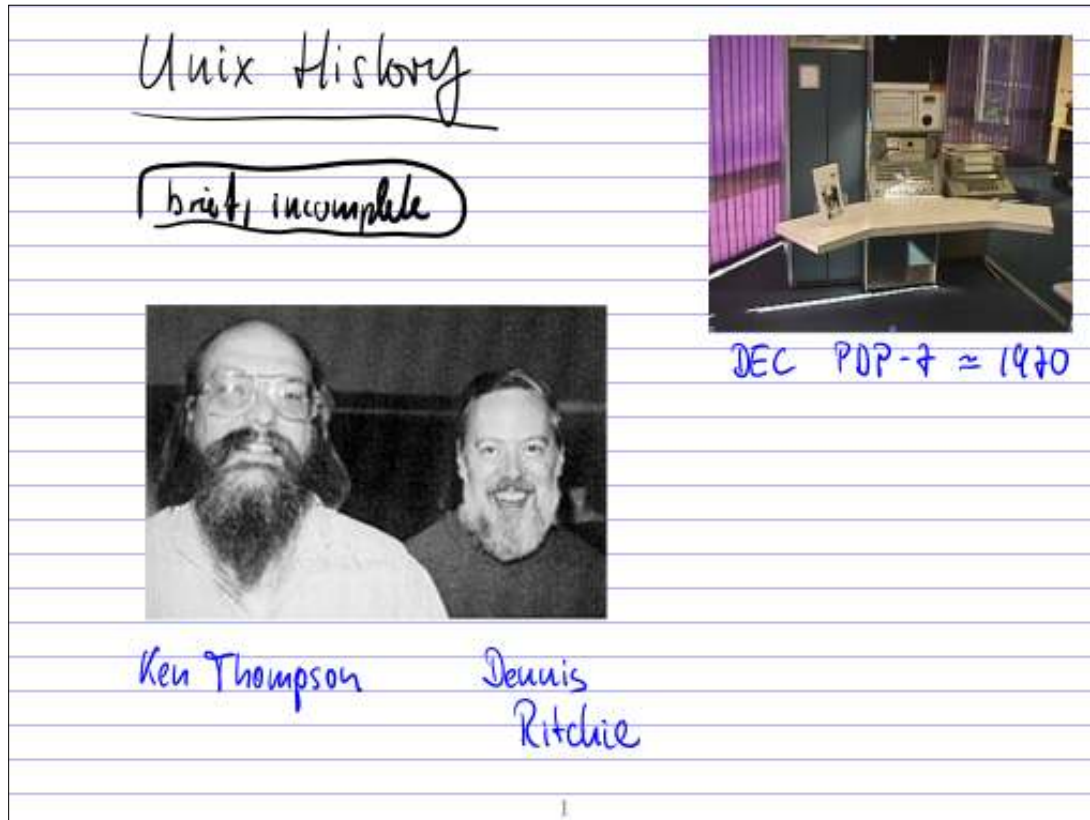 Unix History
brief, incomplete
DEC PDP-7 ≃ 1970
Ken Thompson
Dennis
Ritchie
1